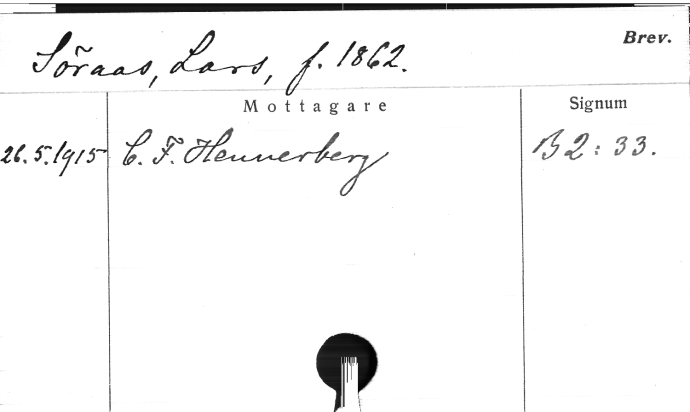 Söraas, Lars, f. 1862.
Brev.
Mottagare
Signum
26.5.1915 C. F. Hennerberg B 2 : 33.